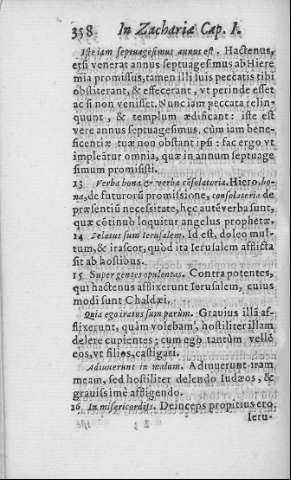 358 In Zachariæ Cap. I.
Iste iam septuagesimus annus est. Hactenus,
etsi venerat annus septuagesimus ab Hiere
mia promissus, tamen illi suis peccatis tibi
obstiterant, & effecerant, vt perinde esset
ac si non venisset. Nunc iam peccata relin-
quunt, & templum ædificant: iste est
vere annus septuagesimus, cùm iam bene-
ficentiæ tuæ non obstant ipsi: fac ergo vt
impleātur omnia, quæ in annum septuage
simum promisisti.
13 Verba bona & verba cōsolatoria. Hiero. bo-
na, de futurorū promissione, consolatoria de
præsentiū necessitate, hęc autē verba sunt,
quæ cōtinuò loquitur angelus prophetæ.
14 Zelatus sum Ierusalem. Id est, doleo mul-
tum, & irascor, quòd ita Ierusalem afflicta
sit ab hostibus.
15 Super gentes opulentas. Contra potentes,
qui hactenus afflixerunt Ierusalem, cuius
modi sunt Chaldæi.
Quia ego iratus sum parùm. Grauius illā af-
flixerunt, quàm volebam, hostiliter illam
delere cupientes; cum ego tantùm vellē
eos, vt filios, castigari.
Adiuuerunt in malum. Adiuuerunt iram
meam, sed hostiliter delendo Iudæos, &
grauissimè affligendo.
16 In misericordijs. Deinceps propitius ero
Ieru-